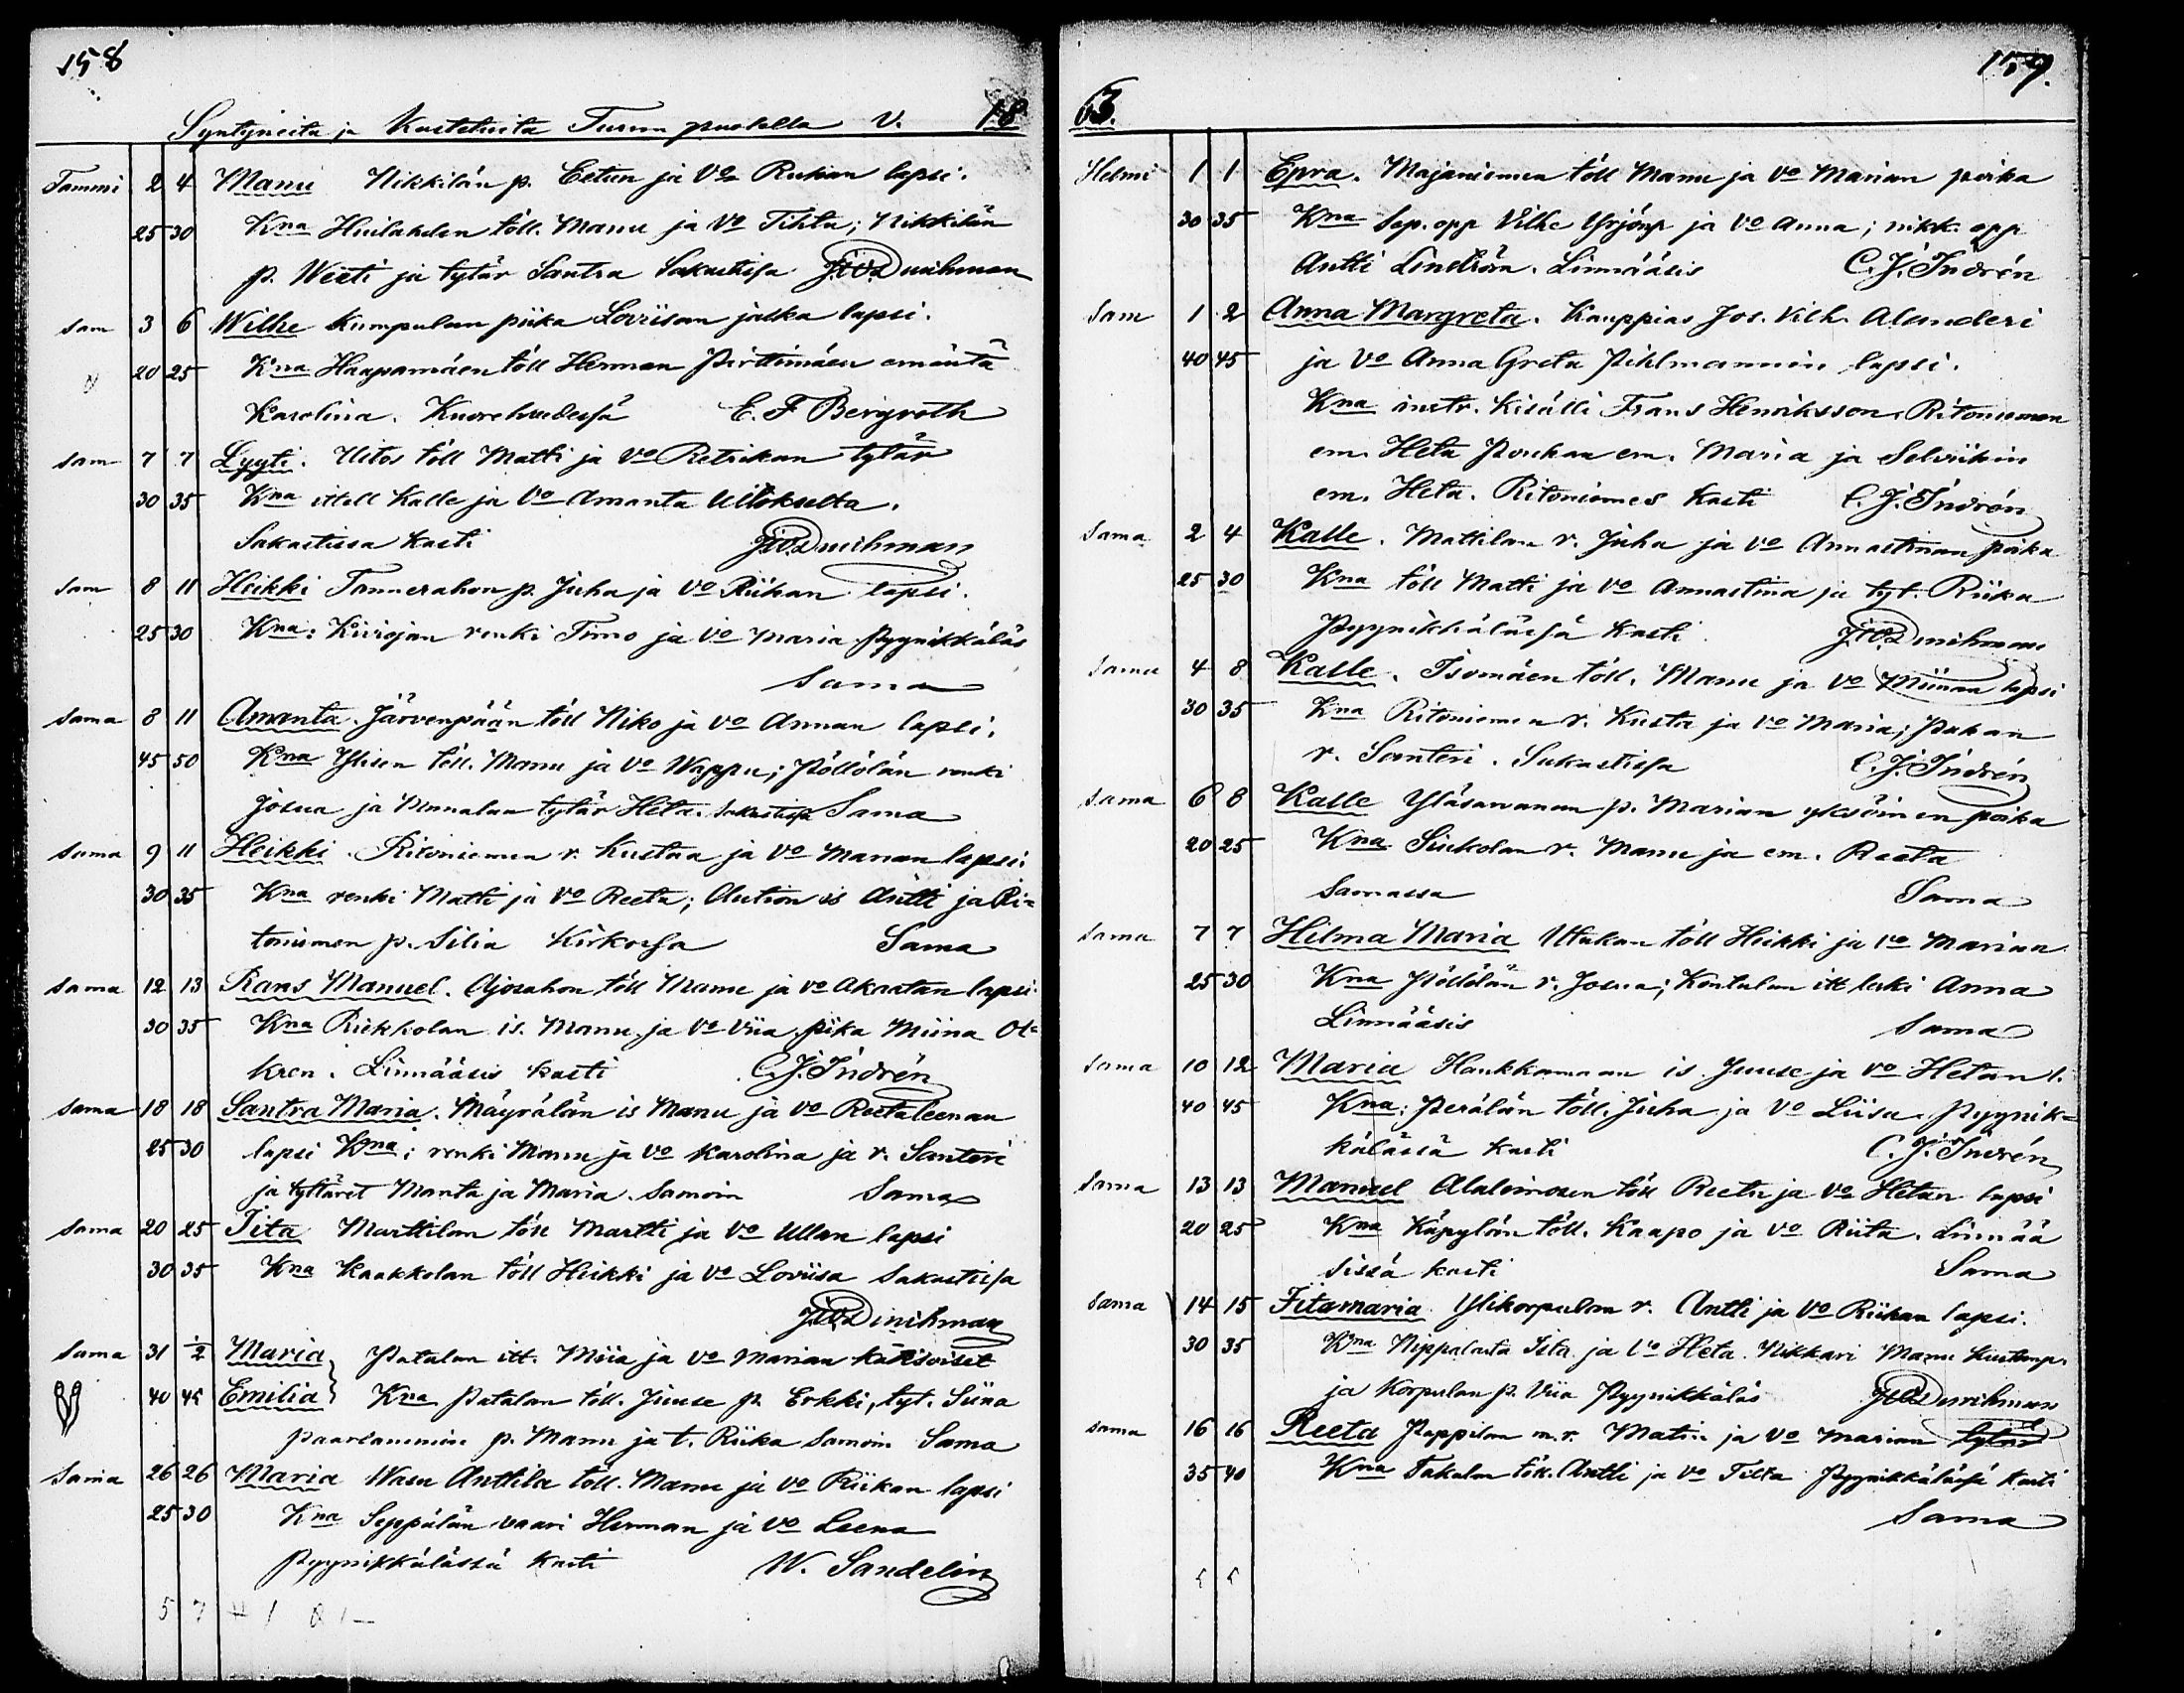 158
Syntyneitä ja Kastetuita Turun puolella V. 18
Tammi 2 4 Manu Nikkilän p. Eetun ja Vo Ruikan lapsi.
25 30 Kna Huilahden töll. Manu ja Vo Tilta; Nikkilän
p. Westi ja tytär Santra Sakastissa
sam 3 6 Wilhe Kumpulan piika Loviisan jalka lapsi.
20 25 Kna Haapamäen töll Herman Pirttimäen emäntä
Karolina. Kuorehvedessä E. F Bergroth
sam 7 7 Lyyti. Uitos töll Matti ja Vo Retrikan tytär
30 35 Kna ittell Kalle ja Vo Amanta Uitokselta.
Sakastissa kasti
sam 8 11 Heikki Tannerahon p. Juha ja Vo Riikan lapsi.
25 30 Kna: Kiviojan renki Timo ja Vo Maria Pyynikkäläs
Sama
sama 8 11 Amanta. Järvenpään töll Niko ja Vo Annan lapsi.
45 50 Kna Ylisen töll. Manu ja Vo Wappu; Pöllölän renki
Josua ja Mamalan tytär Heta. Sakastissa Sama
sama 9 11 Heikki. Ritoniemen r. Kustaa ja Vo Marian lapsi.
30 35 Kna renki Matti ja Vo Reeta; Aution is Antti ja Ri=
toniemen p. Silia Kirkossa Sama
sama 12 13 Rans Manuel. Ajosahon töll Manu ja Vo Akaatan lapsi.
30 35 Kna Riekkolan is. Manu ja Vo Viia piika Miina Ol=
kren. Linnääsis kasti C. J. Indrén
sama 18 18 Santra Maria. Mäyrälän is Manu ja Vo Reetaleenan
25 30 lapsi Kna: renki Manu ja Vo Karolina ja r. Santeri
ja tyttäret Manta ja Maria. Samoin Sama
sama 20 25 Iita Marttilan töll Martti ja Vo Ullan lapsi
30 35 Kna Kaakkolan töll Heikki ja Vo Loviisa Sakastissa
sama 31 1/2 Maria Patalan itt. Miia ja Vo Marian kaksoiset
40 45 Emilia Kna Patalan töll. Juuse p. Erkki, tyt. Siina
p. Manu ja t. Riika Samoin Sama
Sama 26 26 Maria Wasu Anttila töll. Manu ja Vo Riikan lapsi
25 30 Kna Seppälän vaari Herman ja Vo Leena
Pyynikkälässä kasti W. Sandelin
5 7
159.
63.
Helmi 1 1 Epra. Majaniemen töll Manu ja Vo Marian poika
30 35 Kna Sep. opp Vilhe Yrjönp ja Vo Anna; nikk. opp
Antti Lindrön. Linnääsis C. J. Indrén
Sam 1 2 Anna Margreta. Kauppias Jos. Vilh. Alanderi
40 45 ja Vo Anna Greta Pihlmannin lapsi.
Kna instr. kisälli Frans Henriksson. Ritoniemen
em. Heta Poukan em. Maria ja Selviikin
em. Heta. Ritoniemes kasti C. J. Indrén
Sama 2 4 Kalle. Mattilan r. Juha ja Vo Annastinan poika
25 30 Kna töll Matti ja Vo Annastina ja tyt. Riika
Pyynikkälässä kasti
Sama 4 8 Kalle. Isomäen töll. Manu ja Vo Miinan lapsi
30 35 Kna Ritoniemen r. Kusta ja Vo Maria; Pukan
r. Santeri. Sakastissa C. J. Indrén
Sama 6 8 Kalle Yläsavanan p. Marian yksöinen poika
20 25 Kna Siukolan r. Manu ja em. Reeta
Samassa Sama
sama 7 7 Hilma Maria Uttukan töll Heikki ja Vo Marian
25 30 Kna Pöllölän r. Josua; Kontulan itt leski Anna
Linnääsis Sama
Sama 10 12 Maria Haukkamaan is. Juuse ja Vo Hetan l.
40 45 Kna: Perälän töll. Juha ja Vo Liisa. Pyynik=
kälässä kasti C. J. Indrén
Sama 13 13 Manuel Alaloimosen töll Reetu ja Vo Hetan lapsi
20 25 Kna Käpylän töll. Kaapo ja Vo Riita. Linnää
sissä kasti Sama
Sama 14 15 Iitamaria Ylikorpulan r. Antti ja Vo Riikan lapsi.
30 35 Kna Nippalasta Iita ja Vo Heta. Nikkari Manu Kustinp.
ja Korpulan p. Viia Pyynikkäläs
sama 16 16 Reeta Pappilan m.r. Matin ja Vo Marian tytär
35 40 Kna Takalan töll. Antti ja Vo Tilta Pyynikkälässä kasti
Sama
5 5